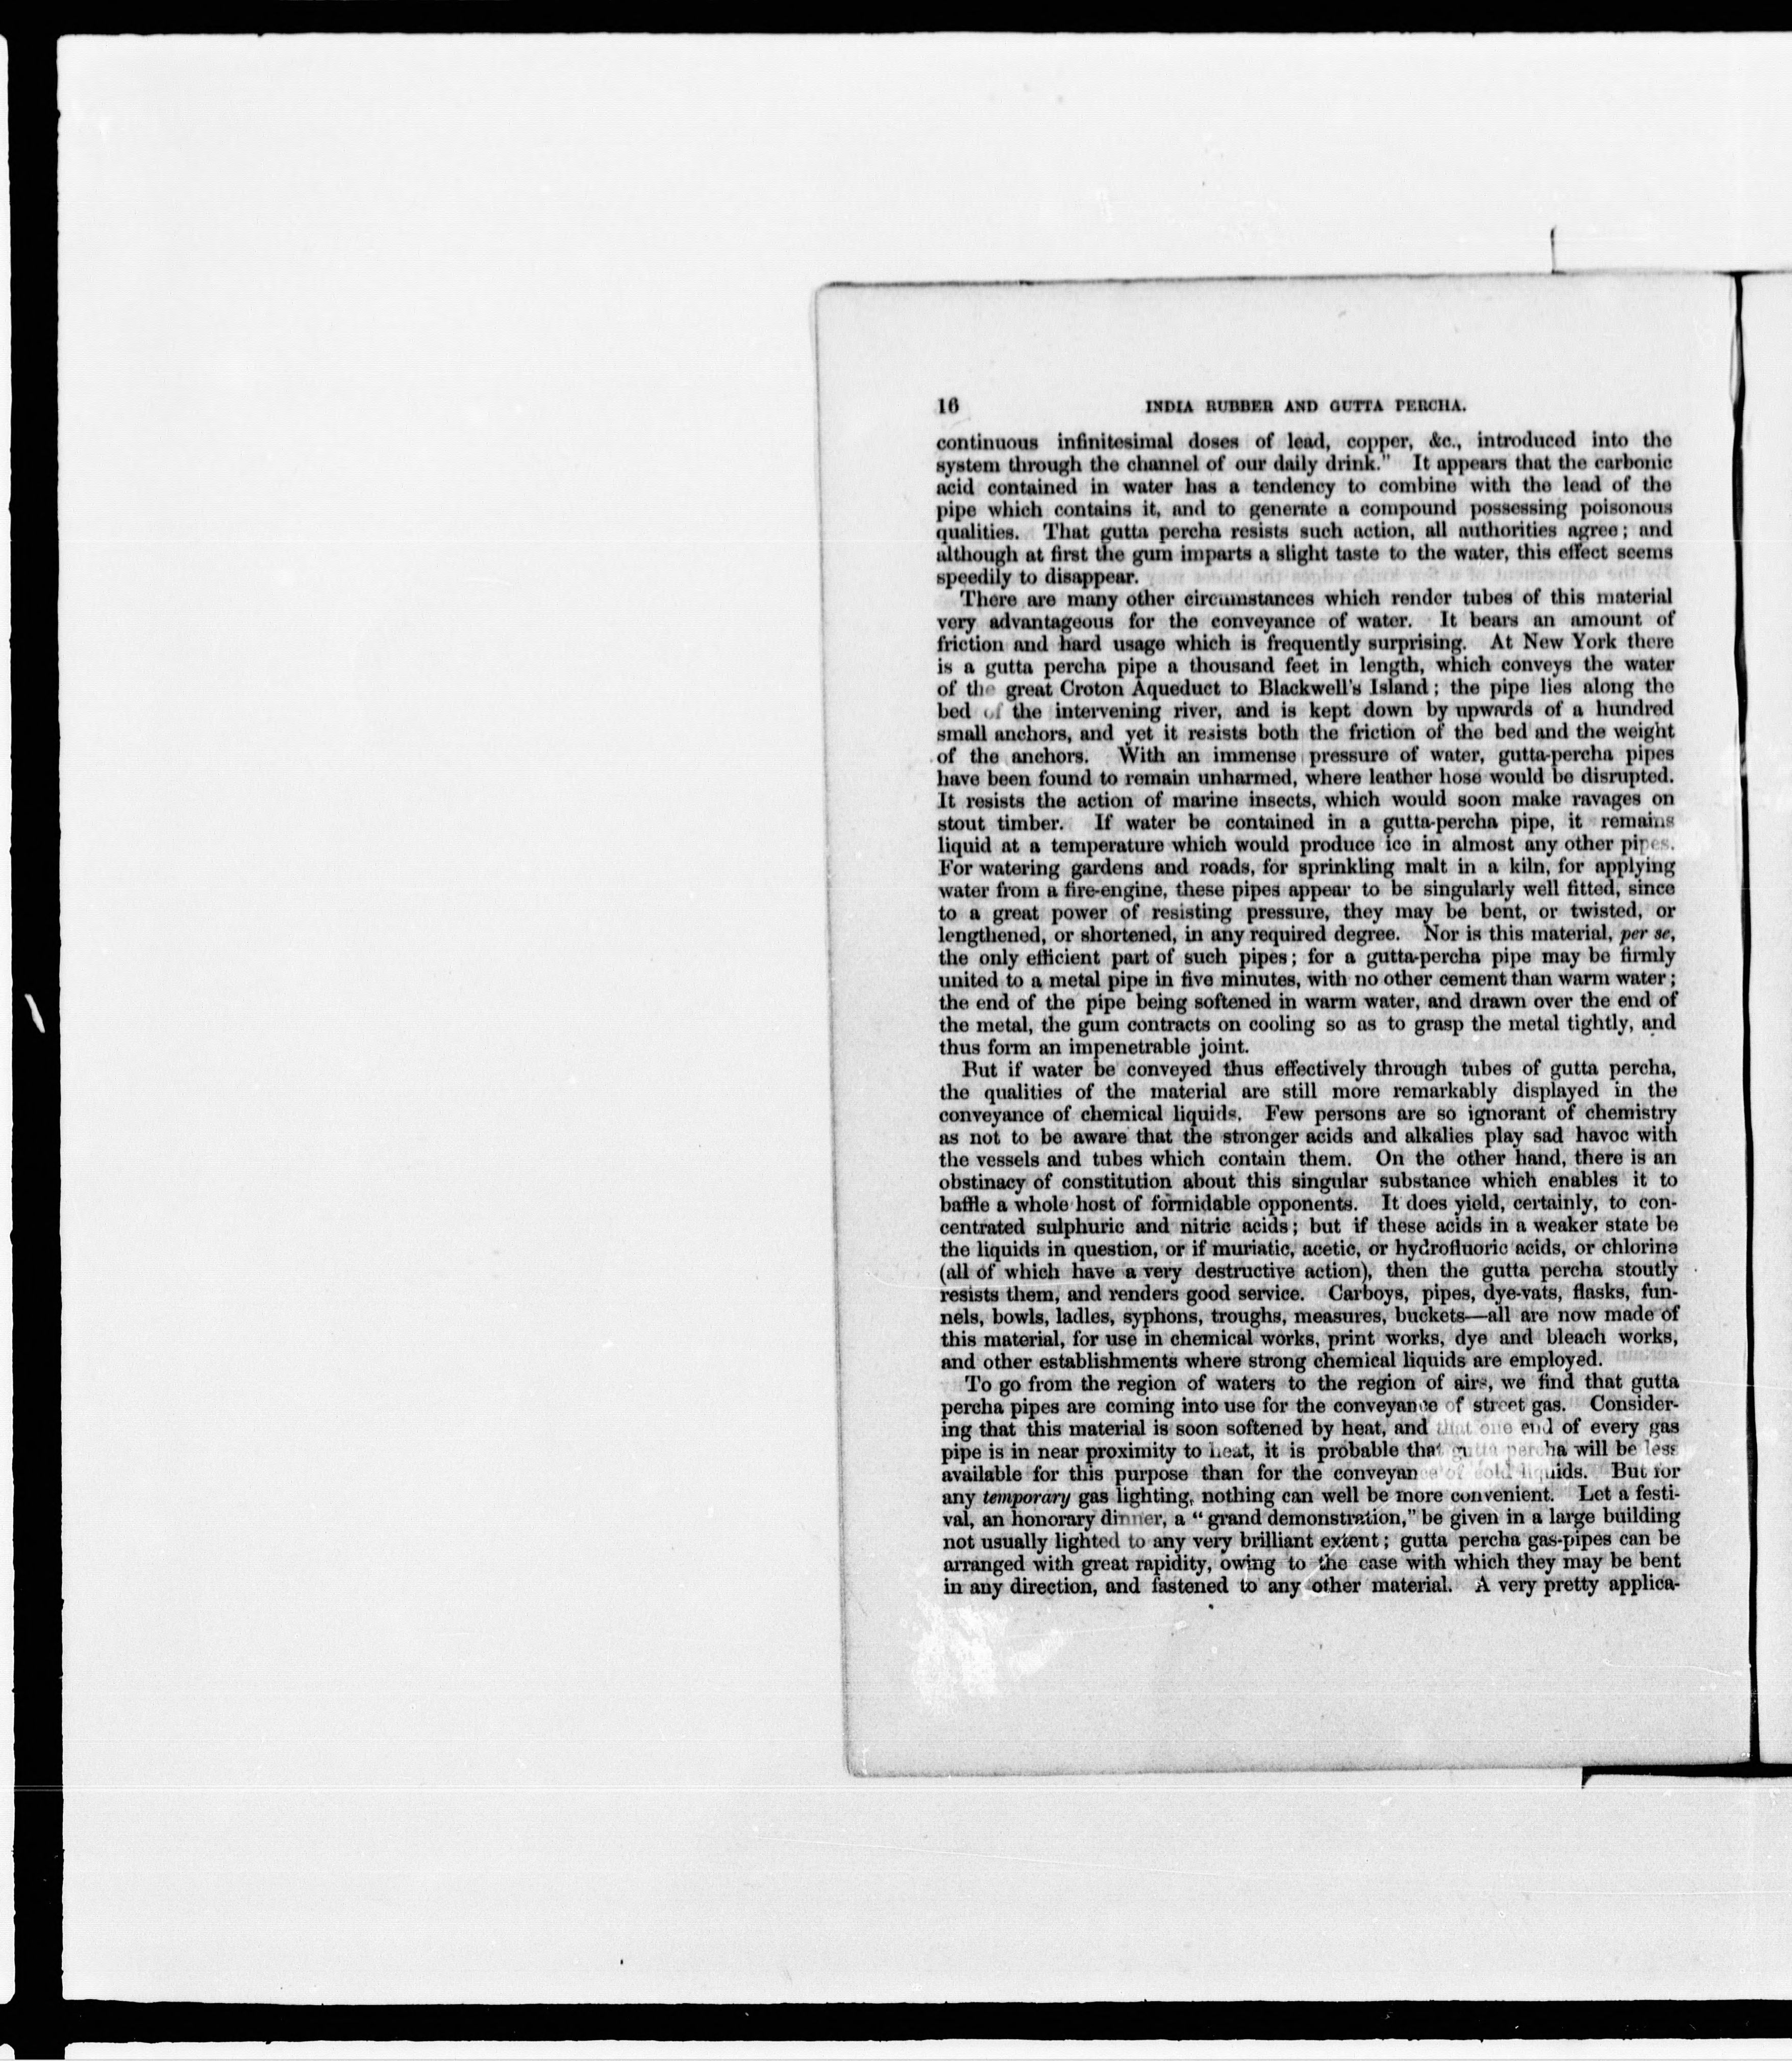 16 INDIA RUBBER AND GUTTA PERCHA.
continuous infinitesimal doses of lead, copper, &c., introduced into the
system through the channel of our daily drink." It appears that the carbonic
acid contained in water has a tendency to combine with the lead of the
pipe which contains it, and to generate a compound possessing poisonous
qualities. That gutta percha resists such action, all authorities agree; and
although at first the gum imparts a slight taste to the water, this effect seems
speedily to disappear.
There are many other circumstances which render tubes of this material
very advantageous for the conveyance of water. It bears an amount of
friction and hard usage which is frequently surprising. At New York there
is a gutta percha pipe a thousand feet in length, which conveys the water
of the great Croton Aqueduct to Blackwell's Island; the pipe lies along the
bed of the intervening river, and is kept down by upwards of a hundred
small anchors, and yet it resists both the friction of the bed and the weight
of the anchors. With an immense pressure of water, gutta-percha pipes
have been found to remain unharmed, where leather hose would be disrupted.
It resists the action of marine insects, which would soon make ravages on
stout timber. If water be contained in a gutta-percha pipe, it remains
liquid at a temperature which would produce ice in almost any other pipes.
For watering gardens and roads, for sprinkling malt in a kiln, for applying
water from a fire-engine, these pipes appear to be singularly well fitted, since
to a great power of resisting pressure, they may be bent, or twisted, or
lengthened, or shortened, in any required degree. Nor is this material, per se,
the only efficient part of such pipes; for a gutta-percha pipe may be firmly
united to a metal pipe in five minutes, with no other cement than warm water;
the end of the pipe being softened in warm water, and drawn over the end of
the metal, the gum contracts on cooling so as to grasp the metal tightly, and
thus form an impenetrable joint.
But if water be conveyed thus effectively through tubes of gutta percha,
the qualities of the material are still more remarkably displayed in the
conveyance of chemical liquids. Few persons are so ignorant of chemistry
as not to be aware that the stronger acids and alkalies play sad havoc with
the vessels and tubes which contain them. On the other hand, there is an
obstinacy of constitution about this singular substance which enables it to
baffle a whole host of formidable opponents. It does yield, certainly, to con-
centrated sulphuric and nitric acids; but if these acids in a weaker state be
the liquids in question, or if muriatic, acetic, or hydrofluoric acids, or chlorine
(all of which have a very destructive action), then the gutta percha stoutly
resists them, and renders good service. Carboys, pipes, dye-vats, flasks, fun-
nels, bowls, ladles, syphons, troughs, measures, buckets—all are now made of
this material, for use in chemical works, print works, dye and bleach works,
and other establishments where strong chemical liquids are employed.
To go from the region of waters to the region of airs, we find that gutta
percha pipes are coming into use for the conveyance of street gas. Consider-
ing that this material is soon softened by heat, and that one end of every gas
pipe is in near proximity to heat, it is probable that gutta percha will be less
available for this purpose than for the conveyance of cold liquids. But for
any temporary gas lighting, nothing can well be more convenient. Let a festi-
val, an honorary dinner, a "grand demonstration," be given in a large building
not usually lighted to any very brilliant extent; gutta percha gas-pipes can be
arranged with great rapidity, owing to the ease with which they may be bent
in any direction, and fastened to any other material. A very pretty applica-